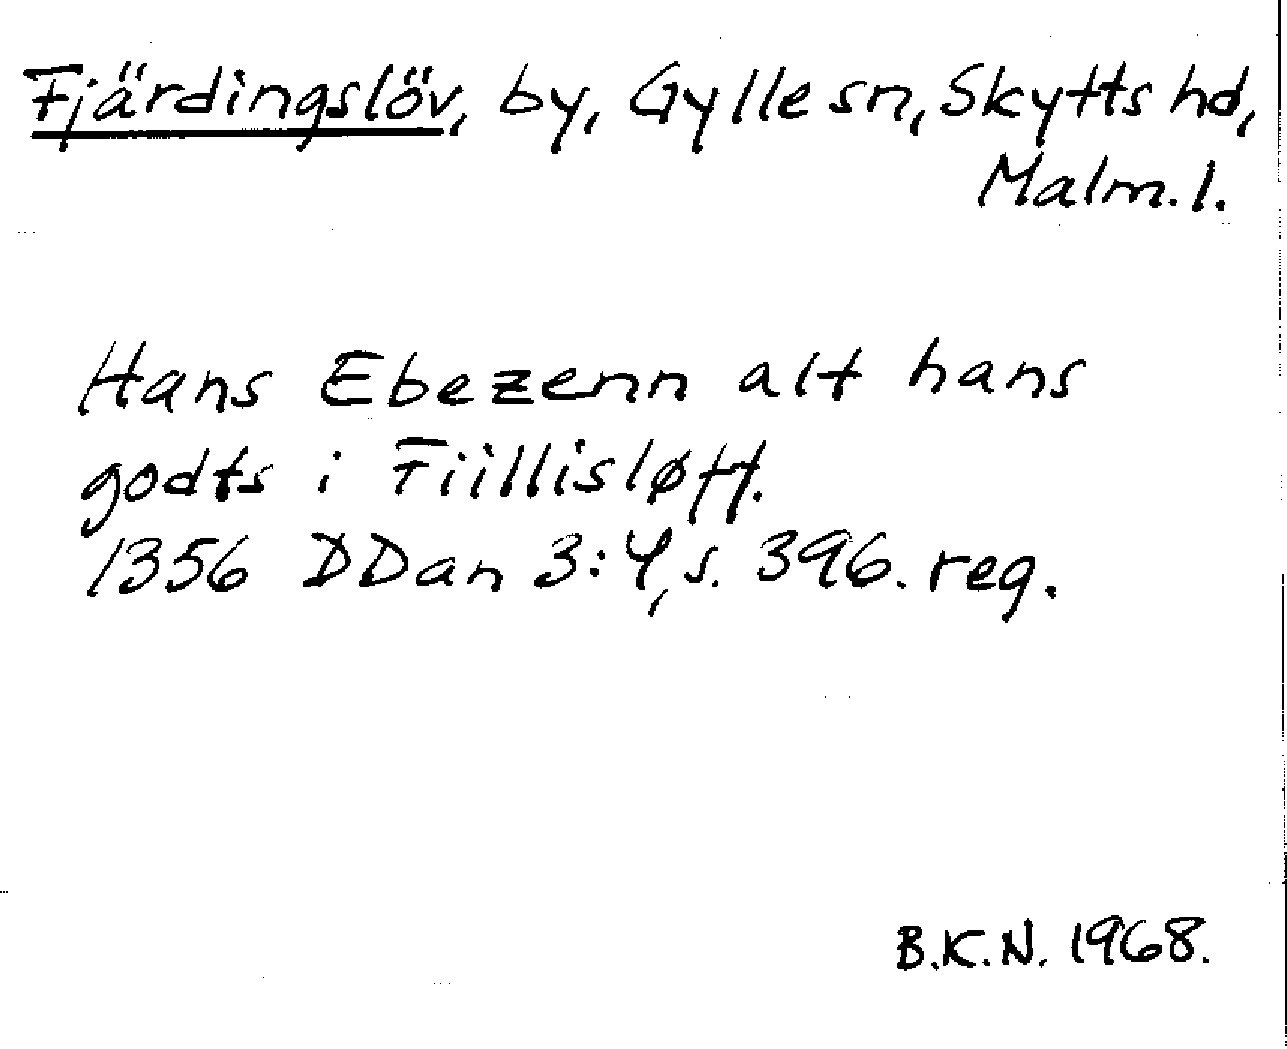 Fjärdingslöv, by, Gylle sn, Skytts hd,
Malm. l.
Hans Ebezenn alt hans
godts i Fiillisløff.
1356 DDan 3:4, s. 396. reg.
B.K.N. 1968.